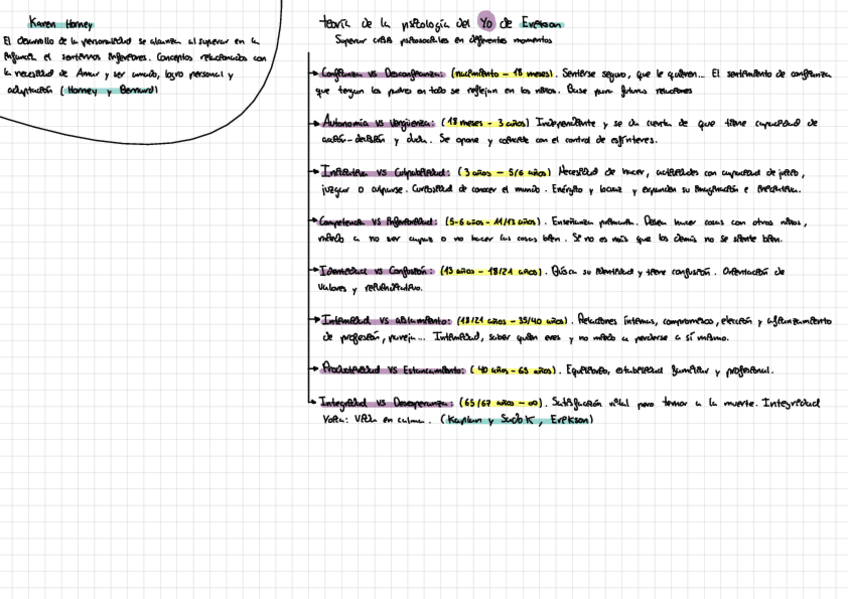 Karen Horney
El desarrollo de la personalidad se alcanza al superar en la
infancia el sentirnos inferiores. Conceptos relacionados con
la necesidad de Amar y ser amado, logro personal y
adaptación (Horney y Bernard)
teoría de la psicología del Yo de Erikson
Superar crisis psicosociales en diferentes momentos
Confianza vs Desconfianza: (nacimiento - 18 meses). Sentirse seguro, que le quieren... El sentimiento de confianza
que tengan los padres en todo se reflejan en los niños. Base para futuras relaciones
Autonomía vs Vergüenza: (18 meses - 3 años) Independiente y se da cuenta de que tiene capacidad de
acción-decisión y duda. Se opone y coincide con el control de esfínteres.
Iniciativa vs Culpabilidad: (3 años - 5/6 años) Necesidad de hacer, actividades con capacidad de juicio,
juzgar o culparse. Curiosidad de conocer el mundo. Energía y locuaz y expanden su imaginación e iniciativa.
Competencia vs Inferioridad: (5-6 años - 11/13 años). Enseñanza primaria. Desea hacer cosas con otros niños,
miedo a no ser capaz o no hacer las cosas bien. Si no es más que los demás no se siente bien.
Identidad vs Confusión: (13 años - 18/21 años). Busca su identidad y tiene confusión. Orientación de
valores y
Intimidad vs aislamiento: (18/21 años - 35/40 años). Relaciones íntimas, compromisos, elección y afianzamiento
de profesión, pareja... Intimidad, saber quién eres y no miedo a perderse a sí mismo.
Productividad vs Estancamiento: (40 años - 65 años). Equilibrio, estabilidad familiar y profesional.
Integridad vs Desesperanza: (65/67 años - ∞). Satisfacción vital para temor a la muerte. Integridad
Vida en calma. (Kaplan y Sadok, Erikson)